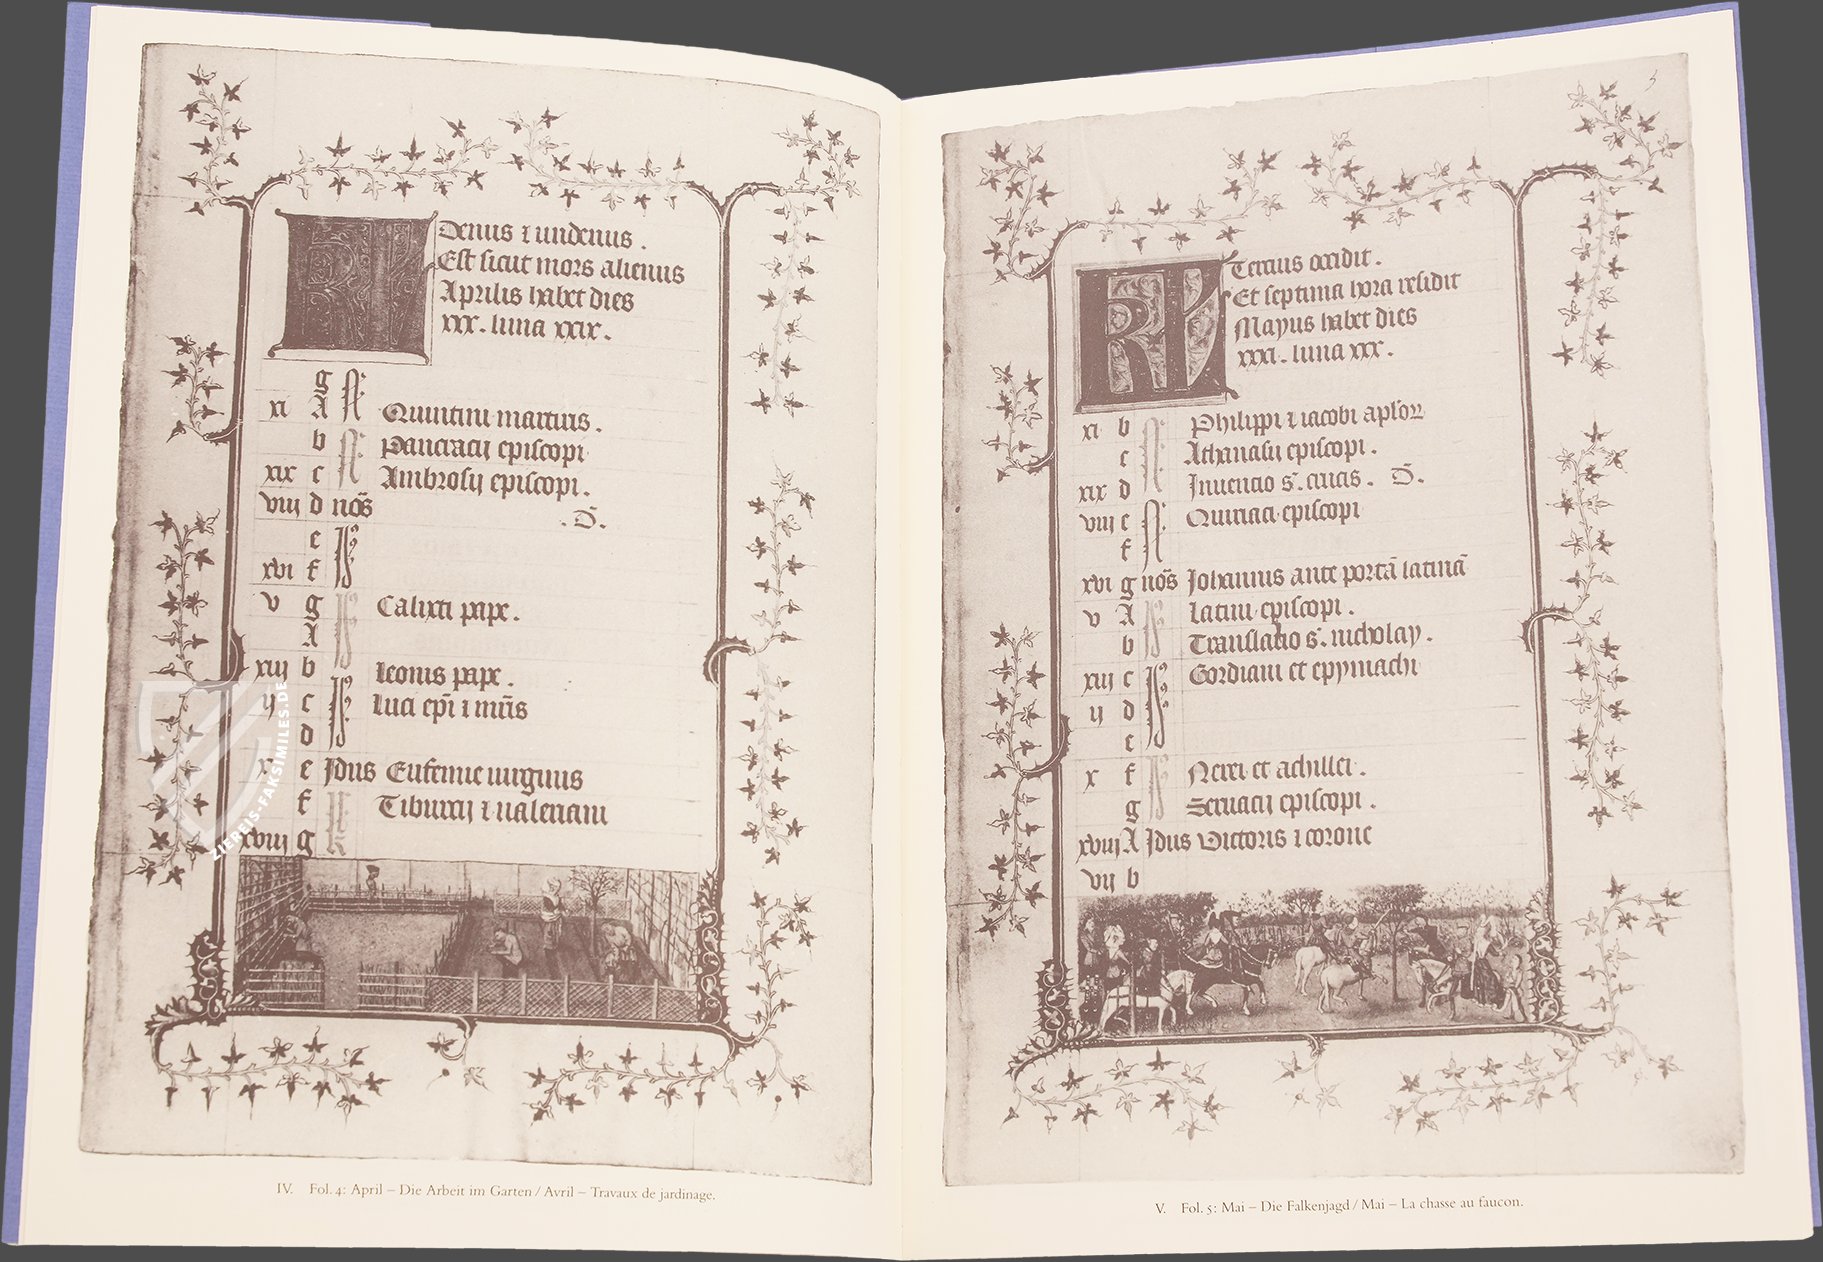 Denus ⁊ undenus .
Est sicut mors alienus
Aprilis habet dies
xxx . luna xxix .
g
xi A Quintini martiris .
b Pancracij episcopi
xix c Ambrosij episcopi .
viij d nōs . D̄ .
e
xvi f
v g Calixti pape .
A
xiij b Leonis pape .
ij c Luci ep̄i ⁊ mr̄is
d
x e Idus Eufemie virginis
f Tiburcij ⁊ valeriani
xviij g
IV. Fol. 4: April – Die Arbeit im Garten / Avril – Travaux de jardinage.
5
KL Tercius occidit .
Et septima hora residit
Mayus habet dies
xxxi . luna xxx .
xi b Philippi ⁊ iacobi apl'or
c Athanasij episcopi .
xix d Inuencio s̄. crucis . D̄ .
viij e Quiriaci episcopi
f
xvi g nōs Johannis ante portā latinā
v A Latini episcopi .
b Translatio s̄. nicholay .
xiij c Gordiani et epymachi
ij d
e
x f Nerei et achillei .
g Seruacij episcopi .
xviij A Idus Victoris ⁊ corone
vij b
5
V. Fol. 5: Mai – Die Falkenjagd / Mai – La chasse au faucon.
ZIEREIS-FAKSIMILES.DE